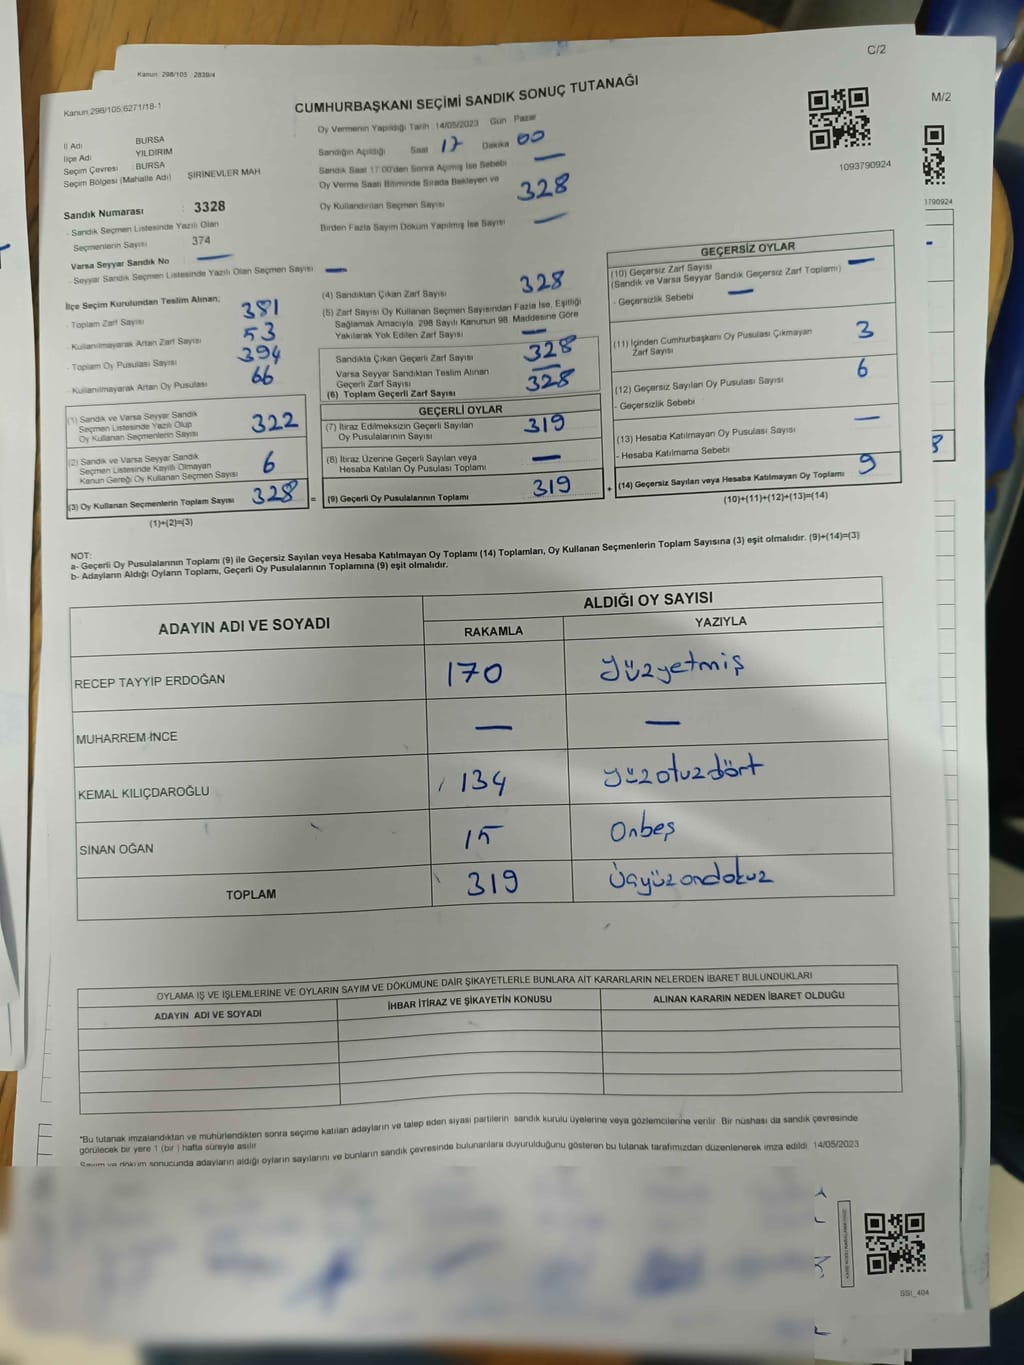 C/2
Kanun: 298/105 2839/4
M/2
Kanun:298/105;6271/18-1
CUMHURBAŞKANI SEÇİMİ SANDIK SONUÇ TUTANAĞI
Oy Vermenin Yapıldığı Tarih : 14/05/2023 Gün Pazar
İl Adı BURSA
İlçe Adı YILDIRIM
Seçim Çevresi : BURSA
Seçim Bölgesi (Mahalle Adı) ŞİRİNEVLER MAH
Sandığın Açıldığı Saat 17 Dakika 00
Sandık Saat 17:00'den Sonra Açılmış İse Sebebi —
Oy Verme Saati Bitiminde Sırada Bekleyen ve
Oy Kullandırılan Seçmen Sayısı 328
Birden Fazla Sayım Döküm Yapılmış İse Sayısı —
1093790924
1790924
Sandık Numarası : 3328
- Sandık Seçmen Listesinde Yazılı Olan
Seçmenlerin Sayısı 374
Varsa Seyyar Sandık No —
- Seyyar Sandık Seçmen Listesinde Yazılı Olan Seçmen Sayısı —
İlçe Seçim Kurulundan Teslim Alınan;
- Toplam Zarf Sayısı 381
- Kullanılmayarak Artan Zarf Sayısı 53
- Toplam Oy Pusulası Sayısı 394
- Kullanılmayarak Artan Oy Pusulası 66
(1) Sandık ve Varsa Seyyar Sandık
Seçmen Listesinde Yazılı Olup
Oy Kullanan Seçmenlerin Sayısı 322
(2) Sandık ve Varsa Seyyar Sandık
Seçmen Listesinde Kayıtlı Olmayan
Kanun Gereği Oy Kullanan Seçmen Sayısı 6
(3) Oy Kullanan Seçmenlerin Toplam Sayısı 328 =
(1)+(2)=(3)
(4) Sandıktan Çıkan Zarf Sayısı 328
(5) Zarf Sayısı Oy Kullanan Seçmen Sayısından Fazla İse, Eşitliği
Sağlamak Amacıyla, 298 Sayılı Kanunun 98. Maddesine Göre
Yakılarak Yok Edilen Zarf Sayısı —
Sandıkta Çıkan Geçerli Zarf Sayısı 328
Varsa Seyyar Sandıktan Teslim Alınan
Geçerli Zarf Sayısı —
(6) Toplam Geçerli Zarf Sayısı 328
GEÇERLİ OYLAR
(7) İtiraz Edilmeksizin Geçerli Sayılan
Oy Pusulalarının Sayısı 319
(8) İtiraz Üzerine Geçerli Sayılan veya
Hesaba Katılan Oy Pusulası Toplamı —
(9) Geçerli Oy Pusulalarının Toplamı 319 +
GEÇERSİZ OYLAR
(10) Geçersiz Zarf Sayısı
(Sandık ve Varsa Seyyar Sandık Geçersiz Zarf Toplamı) —
- Geçersizlik Sebebi —
(11) İçinden Cumhurbaşkanı Oy Pusulası Çıkmayan
Zarf Sayısı 3
(12) Geçersiz Sayılan Oy Pusulası Sayısı 6
- Geçersizlik Sebebi
(13) Hesaba Katılmayan Oy Pusulası Sayısı —
- Hesaba Katılmama Sebebi
(14) Geçersiz Sayılan veya Hesaba Katılmayan Oy Toplamı 9
(10)+(11)+(12)+(13)=(14)
NOT:
a- Geçerli Oy Pusulalarının Toplamı (9) ile Geçersiz Sayılan veya Hesaba Katılmayan Oy Toplamı (14) Toplamları, Oy Kullanan Seçmenlerin Toplam Sayısına (3) eşit olmalıdır. (9)+(14)=(3)
b- Adayların Aldığı Oyların Toplamı, Geçerli Oy Pusulalarının Toplamına (9) eşit olmalıdır.
ADAYIN ADI VE SOYADI ALDIĞI OY SAYISI
RAKAMLA YAZIYLA
RECEP TAYYİP ERDOĞAN 170 yüzyetmiş
MUHARREM İNCE — —
KEMAL KILIÇDAROĞLU 134 yüzotuzdört
SİNAN OĞAN 15 Onbeş
TOPLAM 319 Üçyüzondokuz
OYLAMA İŞ VE İŞLEMLERİNE VE OYLARIN SAYIM VE DÖKÜMÜNE DAİR ŞİKAYETLERLE BUNLARA AİT KARARLARIN NELERDEN İBARET BULUNDUKLARI
ADAYIN ADI VE SOYADI İHBAR İTİRAZ VE ŞİKAYETİN KONUSU ALINAN KARARIN NEDEN İBARET OLDUĞU
*Bu tutanak imzalandıktan ve mühürlendikten sonra seçime katılan adayların ve talep eden siyasi partilerin sandık kurulu üyelerine veya gözlemcilerine verilir. Bir nüshası da sandık çevresinde
görülecek bir yere 1 (bir ) hafta süreyle asılır.
Sayım ve döküm sonucunda adayların aldığı oyların sayılarını ve bunların sandık çevresinde bulunanlara duyurulduğunu gösteren bu tutanak tarafımızdan düzenlenerek imza edildi. 14/05/2023
SSI_404